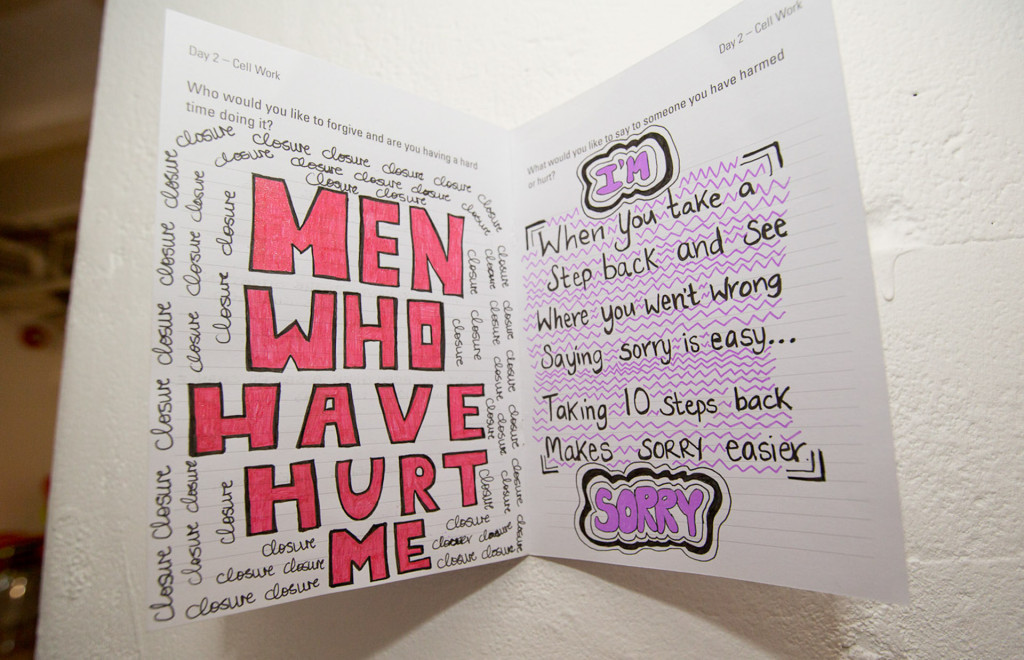 Day 2 – Cell Work
Who would you like to forgive and are you having a hard
time doing it?
closure closure closure closure closure closure
closure closure closure closure closure
closure closure
closure closure closure closure closure closure
closure closure closure closure closure
closure closure closure
MEN
WHO
HAVE
HURT
ME
closure
closure closure
closure closure closure closure closure closure closure
closure closure closure closure closure closure
closure closure
closure closure closure closure
closure closure closure closure
Day 2 – Cell Work
What would you like to say to someone you have harmed
or hurt?
I'M
When you take a
Step back and see
Where you wen't wrong
Saying sorry is easy...
Taking 10 steps back
Makes SORRY easier.
SORRY